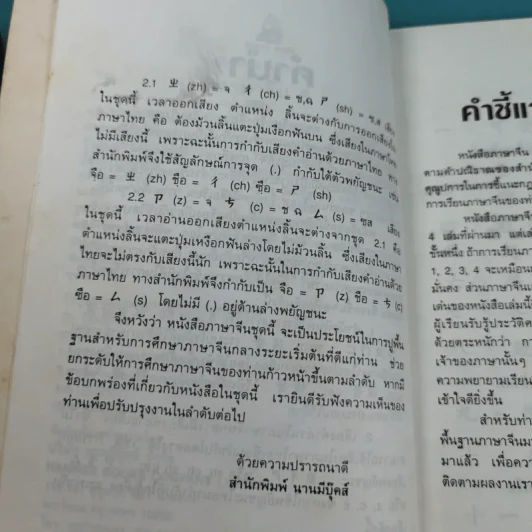 2.1 ㄓ (zh) = จ ㄔ (ch) = ช,ฉ ㄕ (sh) = ซ,ส เสียง
ในชุดนี้ เวลาออกเสียง ตำแหน่ง ลิ้นจะต่างกับการออกเสียงใน
ภาษาไทย คือ ต้องม้วนลิ้นแตะปุ่มเงือกฟันบน ซึ่งเสียงในภาษาไทย
ไม่มีเสียงนี้ เพราะฉะนั้นการกำกับเสียงคำอ่านด้วยภาษาไทย ทาง
สำนักพิมพ์จึงใช้สัญลักษณ์การจุด (.) กำกับใต้ตัวพยัญชนะ เช่น
จือ = ㄓ (zh) ชือ = ㄔ (ch) ซือ = ㄕ (sh)
2.2 ㄗ (z) = จ ㄘ (c) = ช ฉ ㄙ (s) = ซส เสียง
ในชุดนี้ เวลาอ่านออกเสียงตำแหน่งจะต่างจากชุด 2.1 คือ
ตำแหน่งลิ้นจะแตะปุ่มเหงือกฟันล่างโดยไม่ม้วนลิ้น ซึ่งเสียงในภาษา
ไทยจะไม่ตรงกับเสียงนี้นัก เพราะฉะนั้นในการกำกับเสียงคำอ่านด้วย
ภาษาไทย ทางสำนักพิมพ์จึงกำกับเป็น จือ = ㄗ (z) ชือ = ㄘ (c)
ซือ = ㄙ (s) โดยไม่มี (.) อยู่ด้านล่างพยัญชนะ
จึงหวังว่า หนังสือภาษาจีนชุดนี้ จะเป็นประโยชน์ในการปูพื้น
ฐานสำหรับการศึกษาภาษาจีนกลางระยะเริ่มต้นที่ดีแก่ท่าน ช่วย
ยกระดับให้การศึกษาภาษาจีนของท่านก้าวหน้าขึ้นตามลำดับ หากมี
ข้อบกพร่องที่เกี่ยวกับหนังสือในชุดนี้ เรายินดีรับฟังความเห็นของ
ท่านเพื่อปรับปรุงงานในลำดับต่อไป
ด้วยความปรารถนาดี
สำนักพิมพ์ นานมีบุ๊คส์
คำชี้แ
หนังสือภาษาจีน
ตามคำปณิธานของสำนั
คุณูปการในการชี้แนะกา
การเรียนภาษาจีนของท่า
หนังสือภาษาจี
4 เล่มที่ผ่านมา แต่เล่
ขั้นหนึ่ง ถ้าการเรียนภา
1, 2, 3, 4 จะเหมือน
มั่นคง ส่วนภาษาจีนเ
เด่นของหนังสือเล่มนี้
ผู้เรียนรับรู้ประวัติศ
ด้วยตระหนักว่า กา
เจ้าของภาษานั้นๆ
ความพยายามเรียน
เข้าใจดียิ่งขึ้น
สำหรับท่า
พื้นฐานภาษาจีนมา
มาแล้ว เพื่อความ
ติดตามผลงานเรา